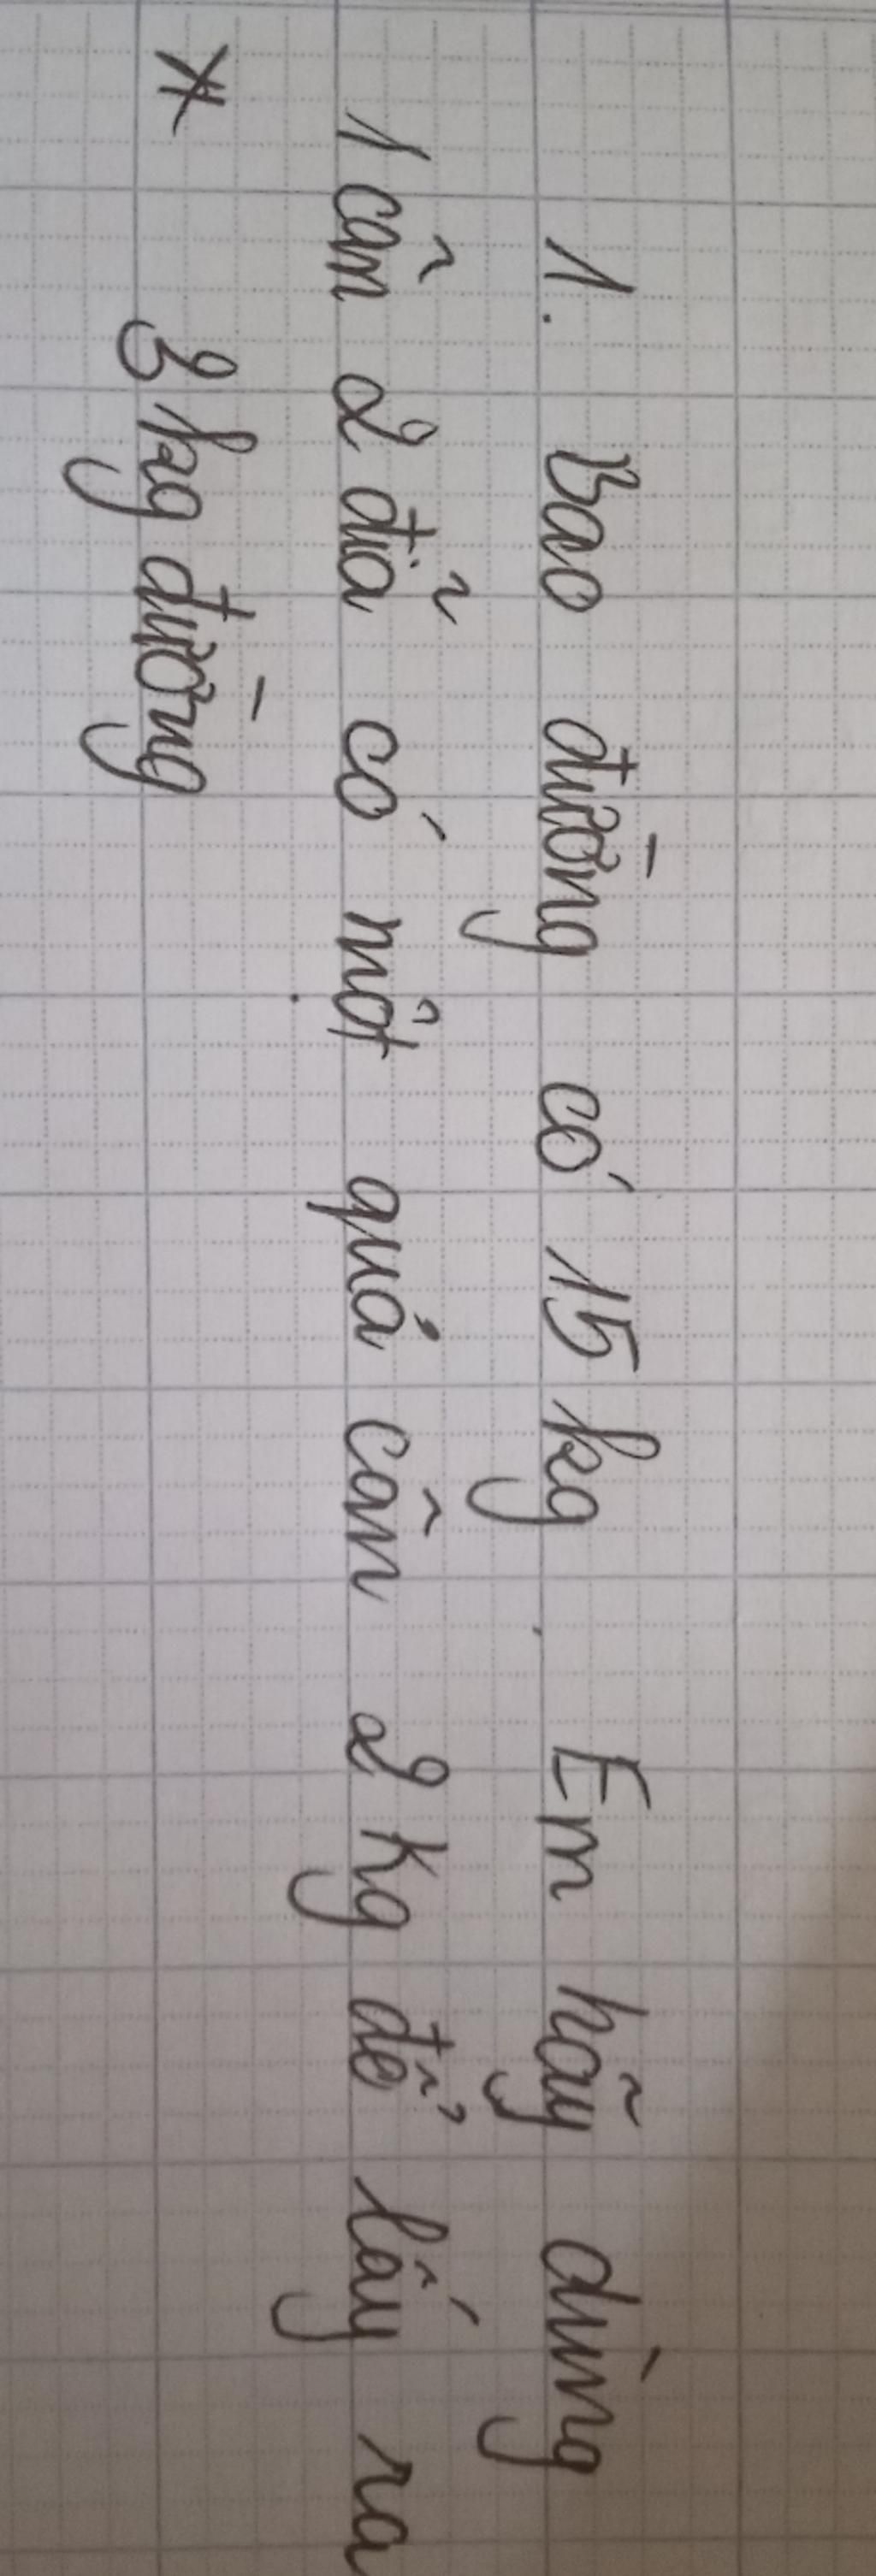 1. Bao đường có 15 kg. Em hãy dùng
1 cân 2 đĩa có một quả cân 2 Kg để lấy ra
* 3 kg đường